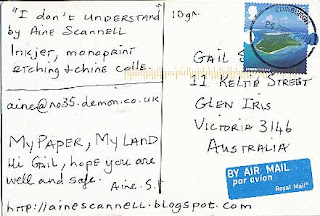 "I don't understand"
by Aine Scannell
Inkjet, monoprint
etching & chine colle.
aine@no35.demon.co.uk
My Paper, My Land
Hi Gail, hope you are
well and safe.
Aine. S.
http://ainescannell.blogspot.com
10gr.
Gail S
11 Keltie Street
Glen Iris
Victoria 3146
Australia
BY AIR MAIL
par avion
Royal Mail